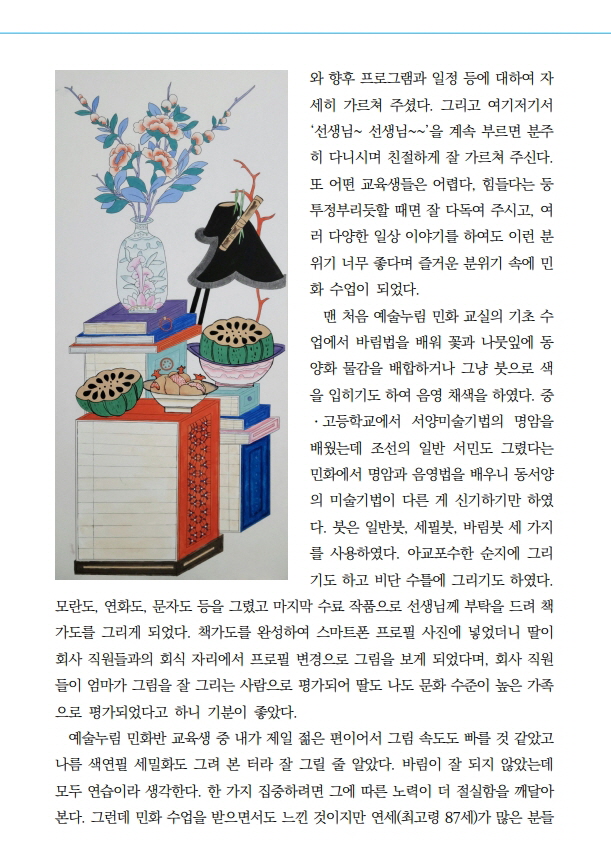 와 향후 프로그램과 일정 등에 대하여 자
세히 가르쳐 주셨다. 그리고 여기저기서
‘선생님~ 선생님~~’을 계속 부르면 분주
히 다니시며 친절하게 잘 가르쳐 주신다.
또 어떤 교육생들은 어렵다, 힘들다는 둥
투정부리듯할 때면 잘 다독여 주시고, 여
러 다양한 일상 이야기를 하여도 이런 분
위기 너무 좋다며 즐거운 분위기 속에 민
화 수업이 되었다.
맨 처음 예술누림 민화 교실의 기초 수
업에서 바림법을 배워 꽃과 나뭇잎에 동
양화 물감을 배합하거나 그냥 붓으로 색
을 입히기도 하여 음영 채색을 하였다. 중
·고등학교에서 서양미술기법의 명암을
배웠는데 조선의 일반 서민도 그렸다는
민화에서 명암과 음영법을 배우니 동서양
의 미술기법이 다른 게 신기하기만 하였
다. 붓은 일반붓, 세필붓, 바림붓 세 가지
를 사용하였다. 아교포수한 순지에 그리
기도 하고 비단 수틀에 그리기도 하였다.
모란도, 연화도, 문자도 등을 그렸고 마지막 수료 작품으로 선생님께 부탁을 드려 책
가도를 그리게 되었다. 책가도를 완성하여 스마트폰 프로필 사진에 넣었더니 딸이
회사 직원들과의 회식 자리에서 프로필 변경으로 그림을 보게 되었다며, 회사 직원
들이 엄마가 그림을 잘 그리는 사람으로 평가되어 딸도 나도 문화 수준이 높은 가족
으로 평가되었다고 하니 기분이 좋았다.
예술누림 민화반 교육생 중 내가 제일 젊은 편이어서 그림 속도도 빠를 것 같았고
나름 색연필 세밀화도 그려 본 터라 잘 그릴 줄 알았다. 바림이 잘 되지 않았는데
모두 연습이라 생각한다. 한 가지 집중하려면 그에 따른 노력이 더 절실함을 깨달아
본다. 그런데 민화 수업을 받으면서도 느낀 것이지만 연세(최고령 87세)가 많은 분들